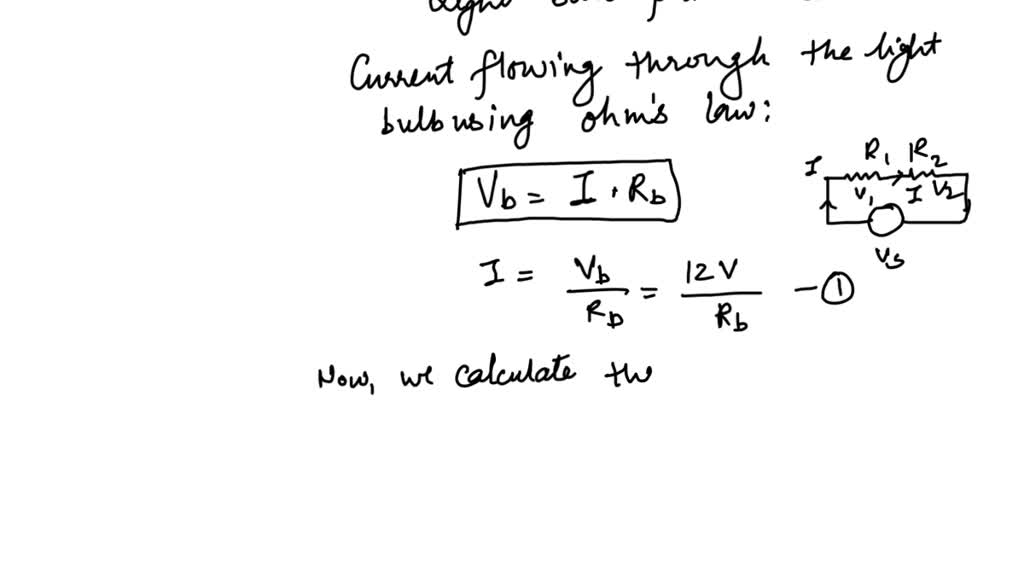 Current flowing through the light
bulb using ohm's law:
V_b = I · R_b
I R_1 R_2
V_1 I V_2
V_s
I = V_b / R_b = 12V / R_b — ①
Now, we calculate the